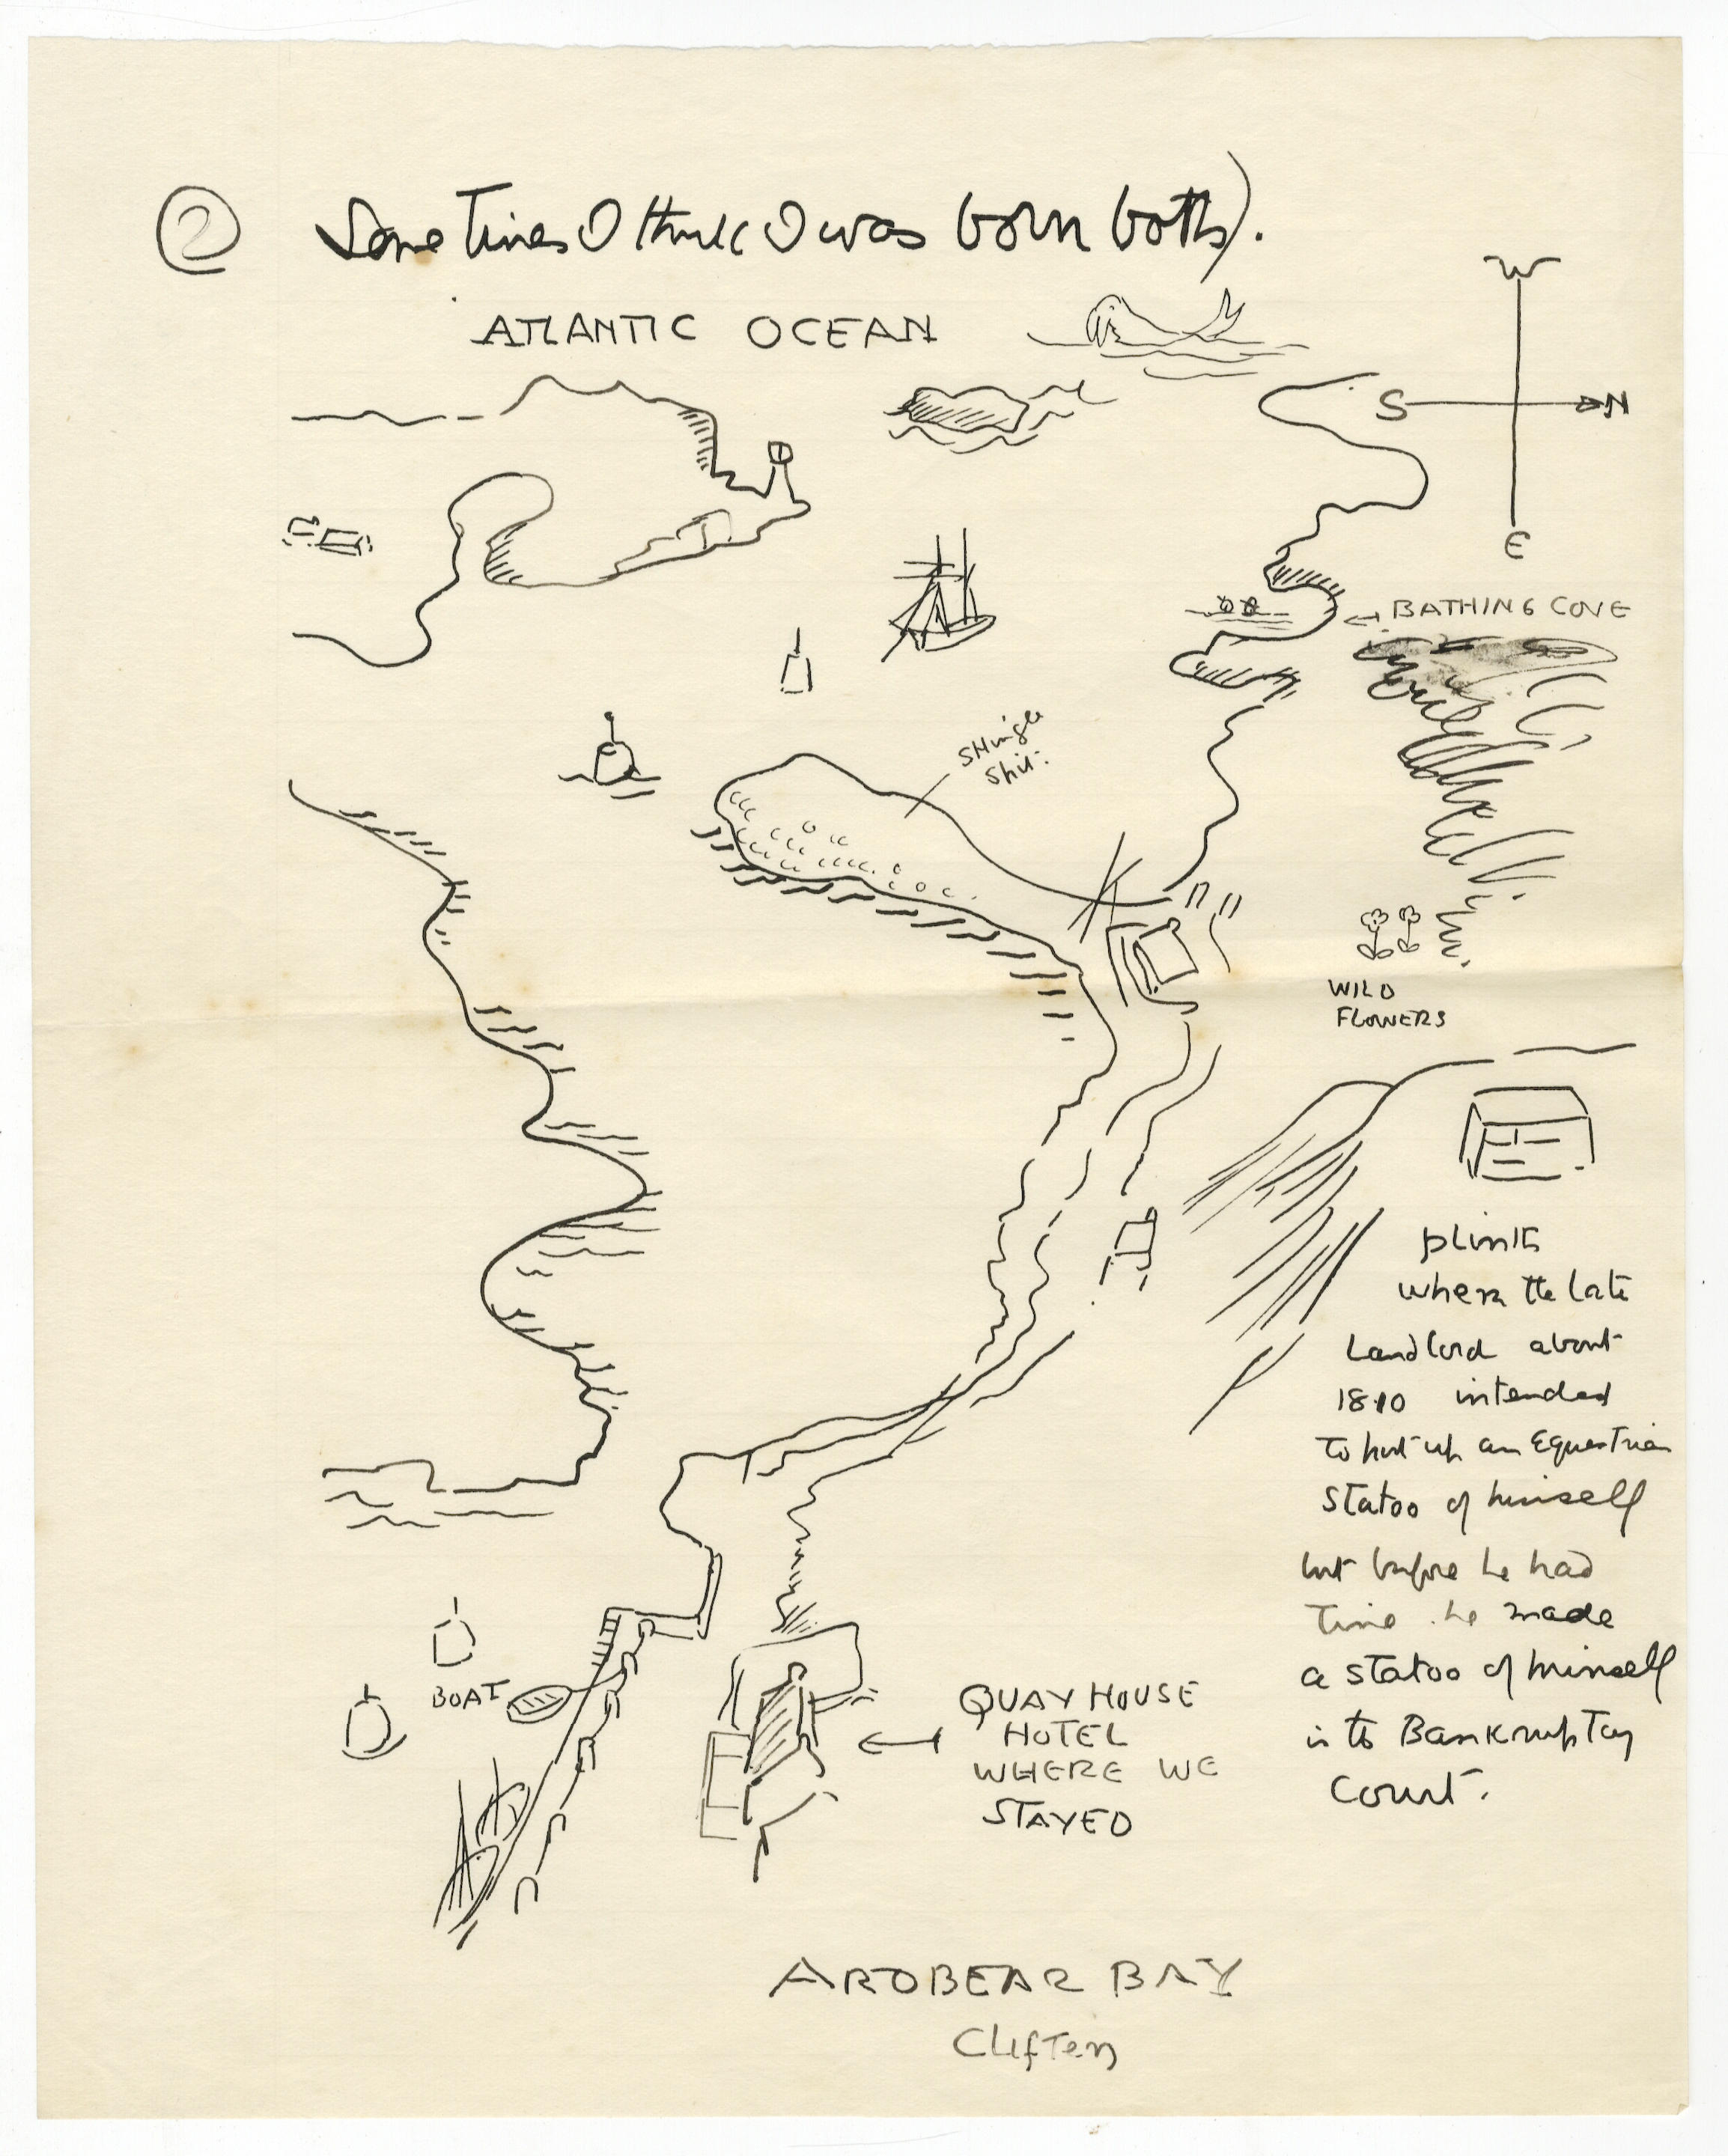 ② Sometimes I think I was born both).
ATLANTIC OCEAN
W
S N
E
← BATHING COVE
Shingle
Spit.
WILD
FLOWERS
plinth
where the late
Landlord about
1810 intended
to put up an Equestrian
Statoo of himself
but before he had
time he made
a statoo of himself
in the Bankruptcy
Court.
BOAT
QUAY HOUSE
HOTEL
WHERE WE
STAYED
ARDBEAR BAY
Clifden